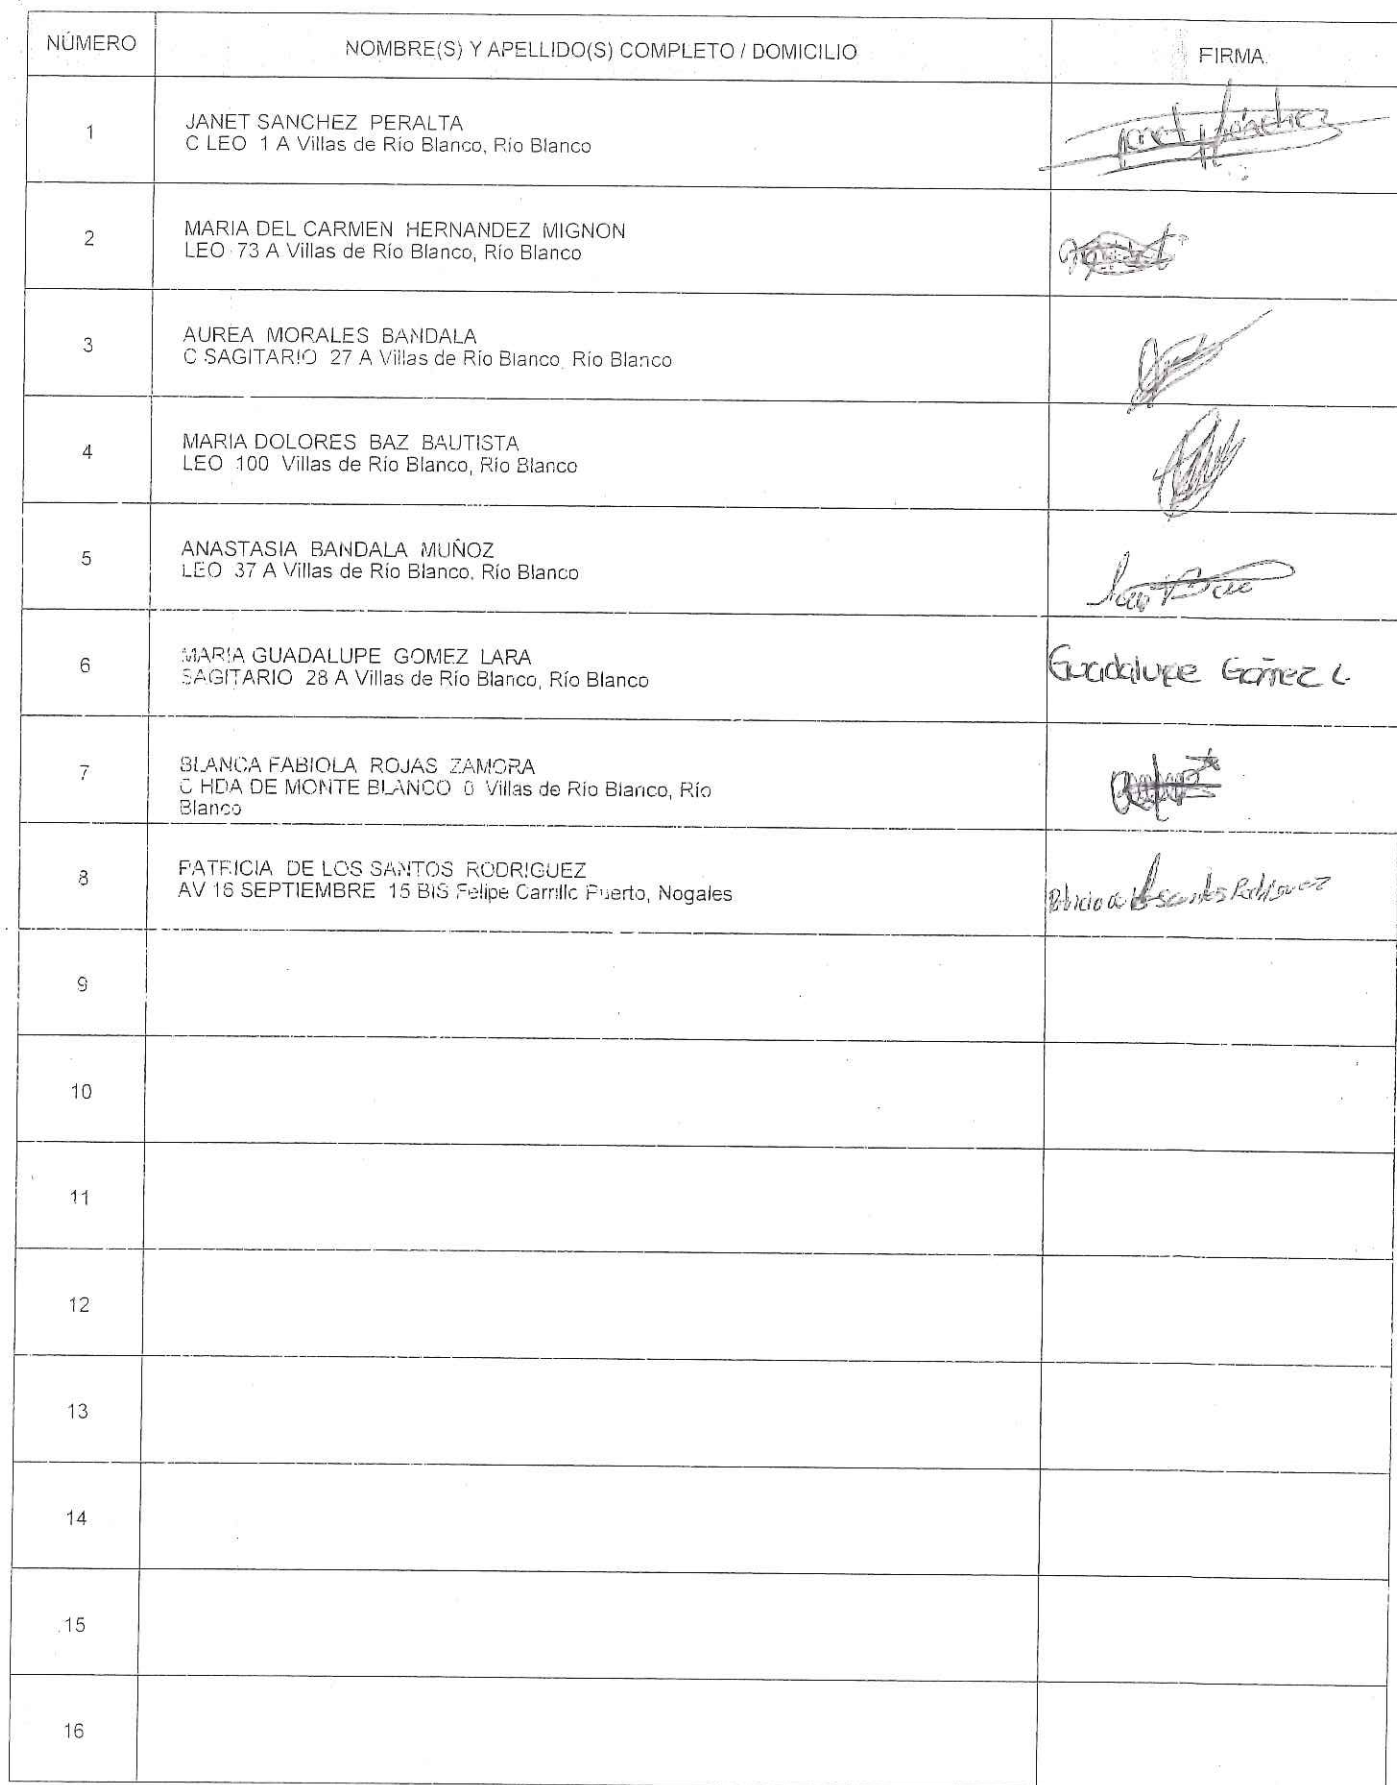 NÚMERO NOMBRE(S) Y APELLIDO(S) COMPLETO / DOMICILIO FIRMA
1 JANET SANCHEZ PERALTA
C LEO 1 A Villas de Río Blanco, Río Blanco
Janet Sánchez
2 MARIA DEL CARMEN HERNANDEZ MIGNON
LEO 73 A Villas de Río Blanco, Río Blanco
3 AUREA MORALES BANDALA
C SAGITARIO 27 A Villas de Río Blanco, Río Blanco
4 MARIA DOLORES BAZ BAUTISTA
LEO 100 Villas de Río Blanco, Río Blanco
5 ANASTASIA BANDALA MUÑOZ
LEO 37 A Villas de Río Blanco, Río Blanco
6 MARIA GUADALUPE GOMEZ LARA
SAGITARIO 28 A Villas de Río Blanco, Río Blanco
Guadalupe Gómez L.
7 BLANCA FABIOLA ROJAS ZAMORA
C HDA DE MONTE BLANCO 0 Villas de Río Blanco, Río
Blanco
8 PATRICIA DE LOS SANTOS RODRIGUEZ
AV 16 SEPTIEMBRE 15 BIS Felipe Carrillo Puerto, Nogales
Patricia de los Santos Rodríguez
9
10
11
12
13
14
15
16